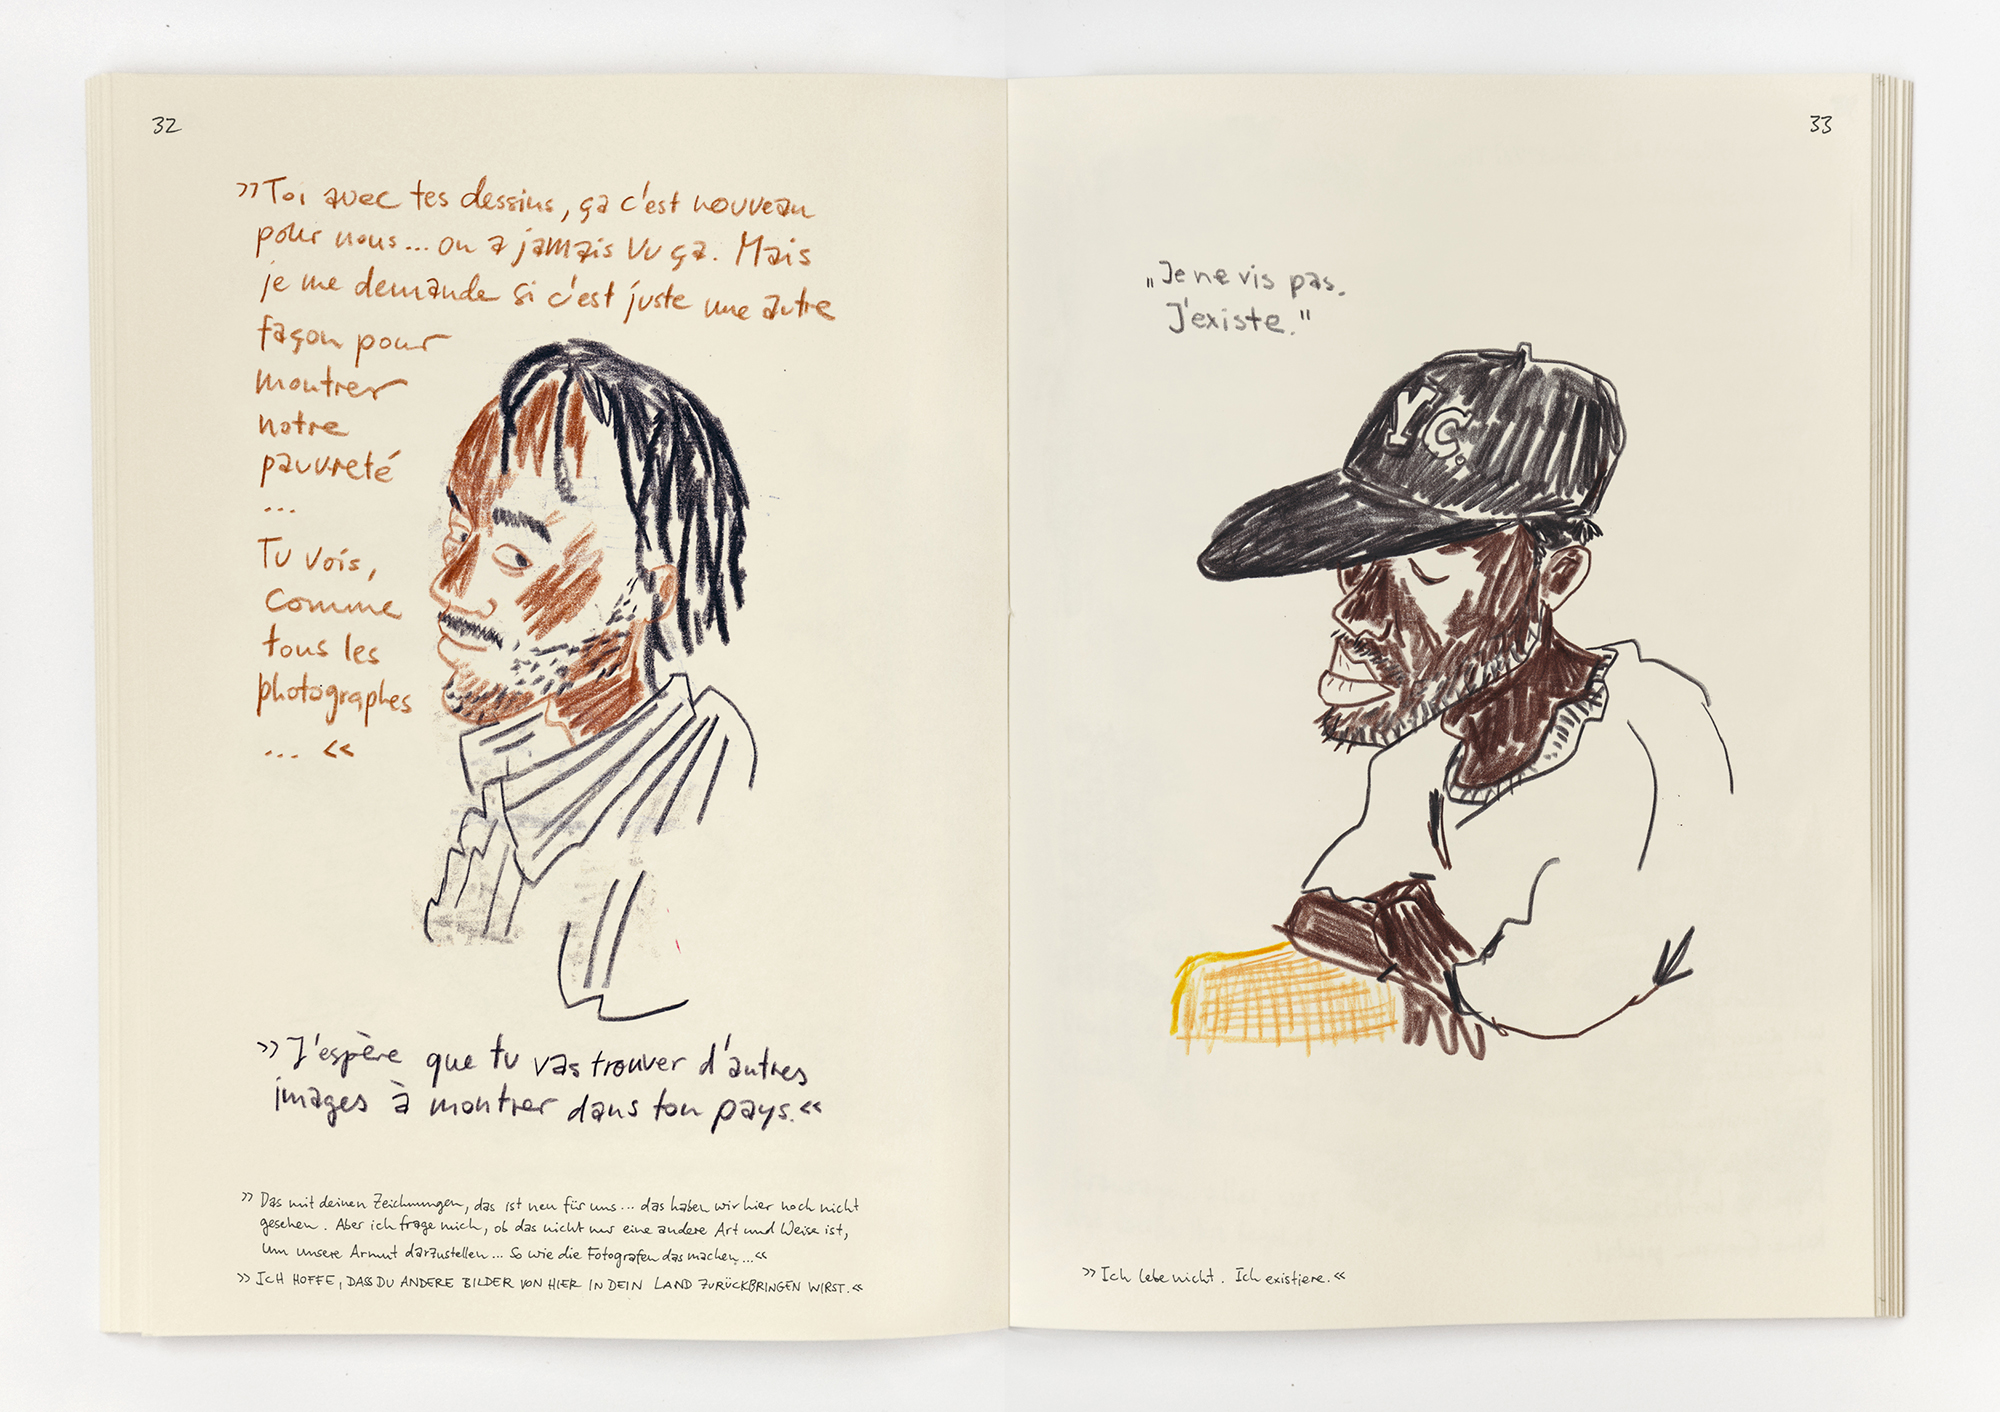 32
»Toi avec tes dessins, ça c'est nouveau
pour nous... on a jamais vu ça. Mais
je me demande si c'est juste une autre
façon pour
montrer
notre
pauvreté
...
Tu vois,
comme
tous les
photographes
... «
»J'espère que tu vas trouver d'autres
images à montrer dans ton pays.«
»Das mit deinen Zeichnungen, das ist neu für uns... das haben wir hier noch nicht
gesehen. Aber ich frage mich, ob das nicht nur eine andere Art und Weise ist,
um unsere Armut darzustellen... So wie die Fotografen das machen...«
»ICH HOFFE, DASS DU ANDERE BILDER VON HIER IN DEIN LAND ZURÜCKBRINGEN WIRST.«
33
„Je ne vis pas.
J'existe."
YC.
»Ich lebe nicht. Ich existiere.«